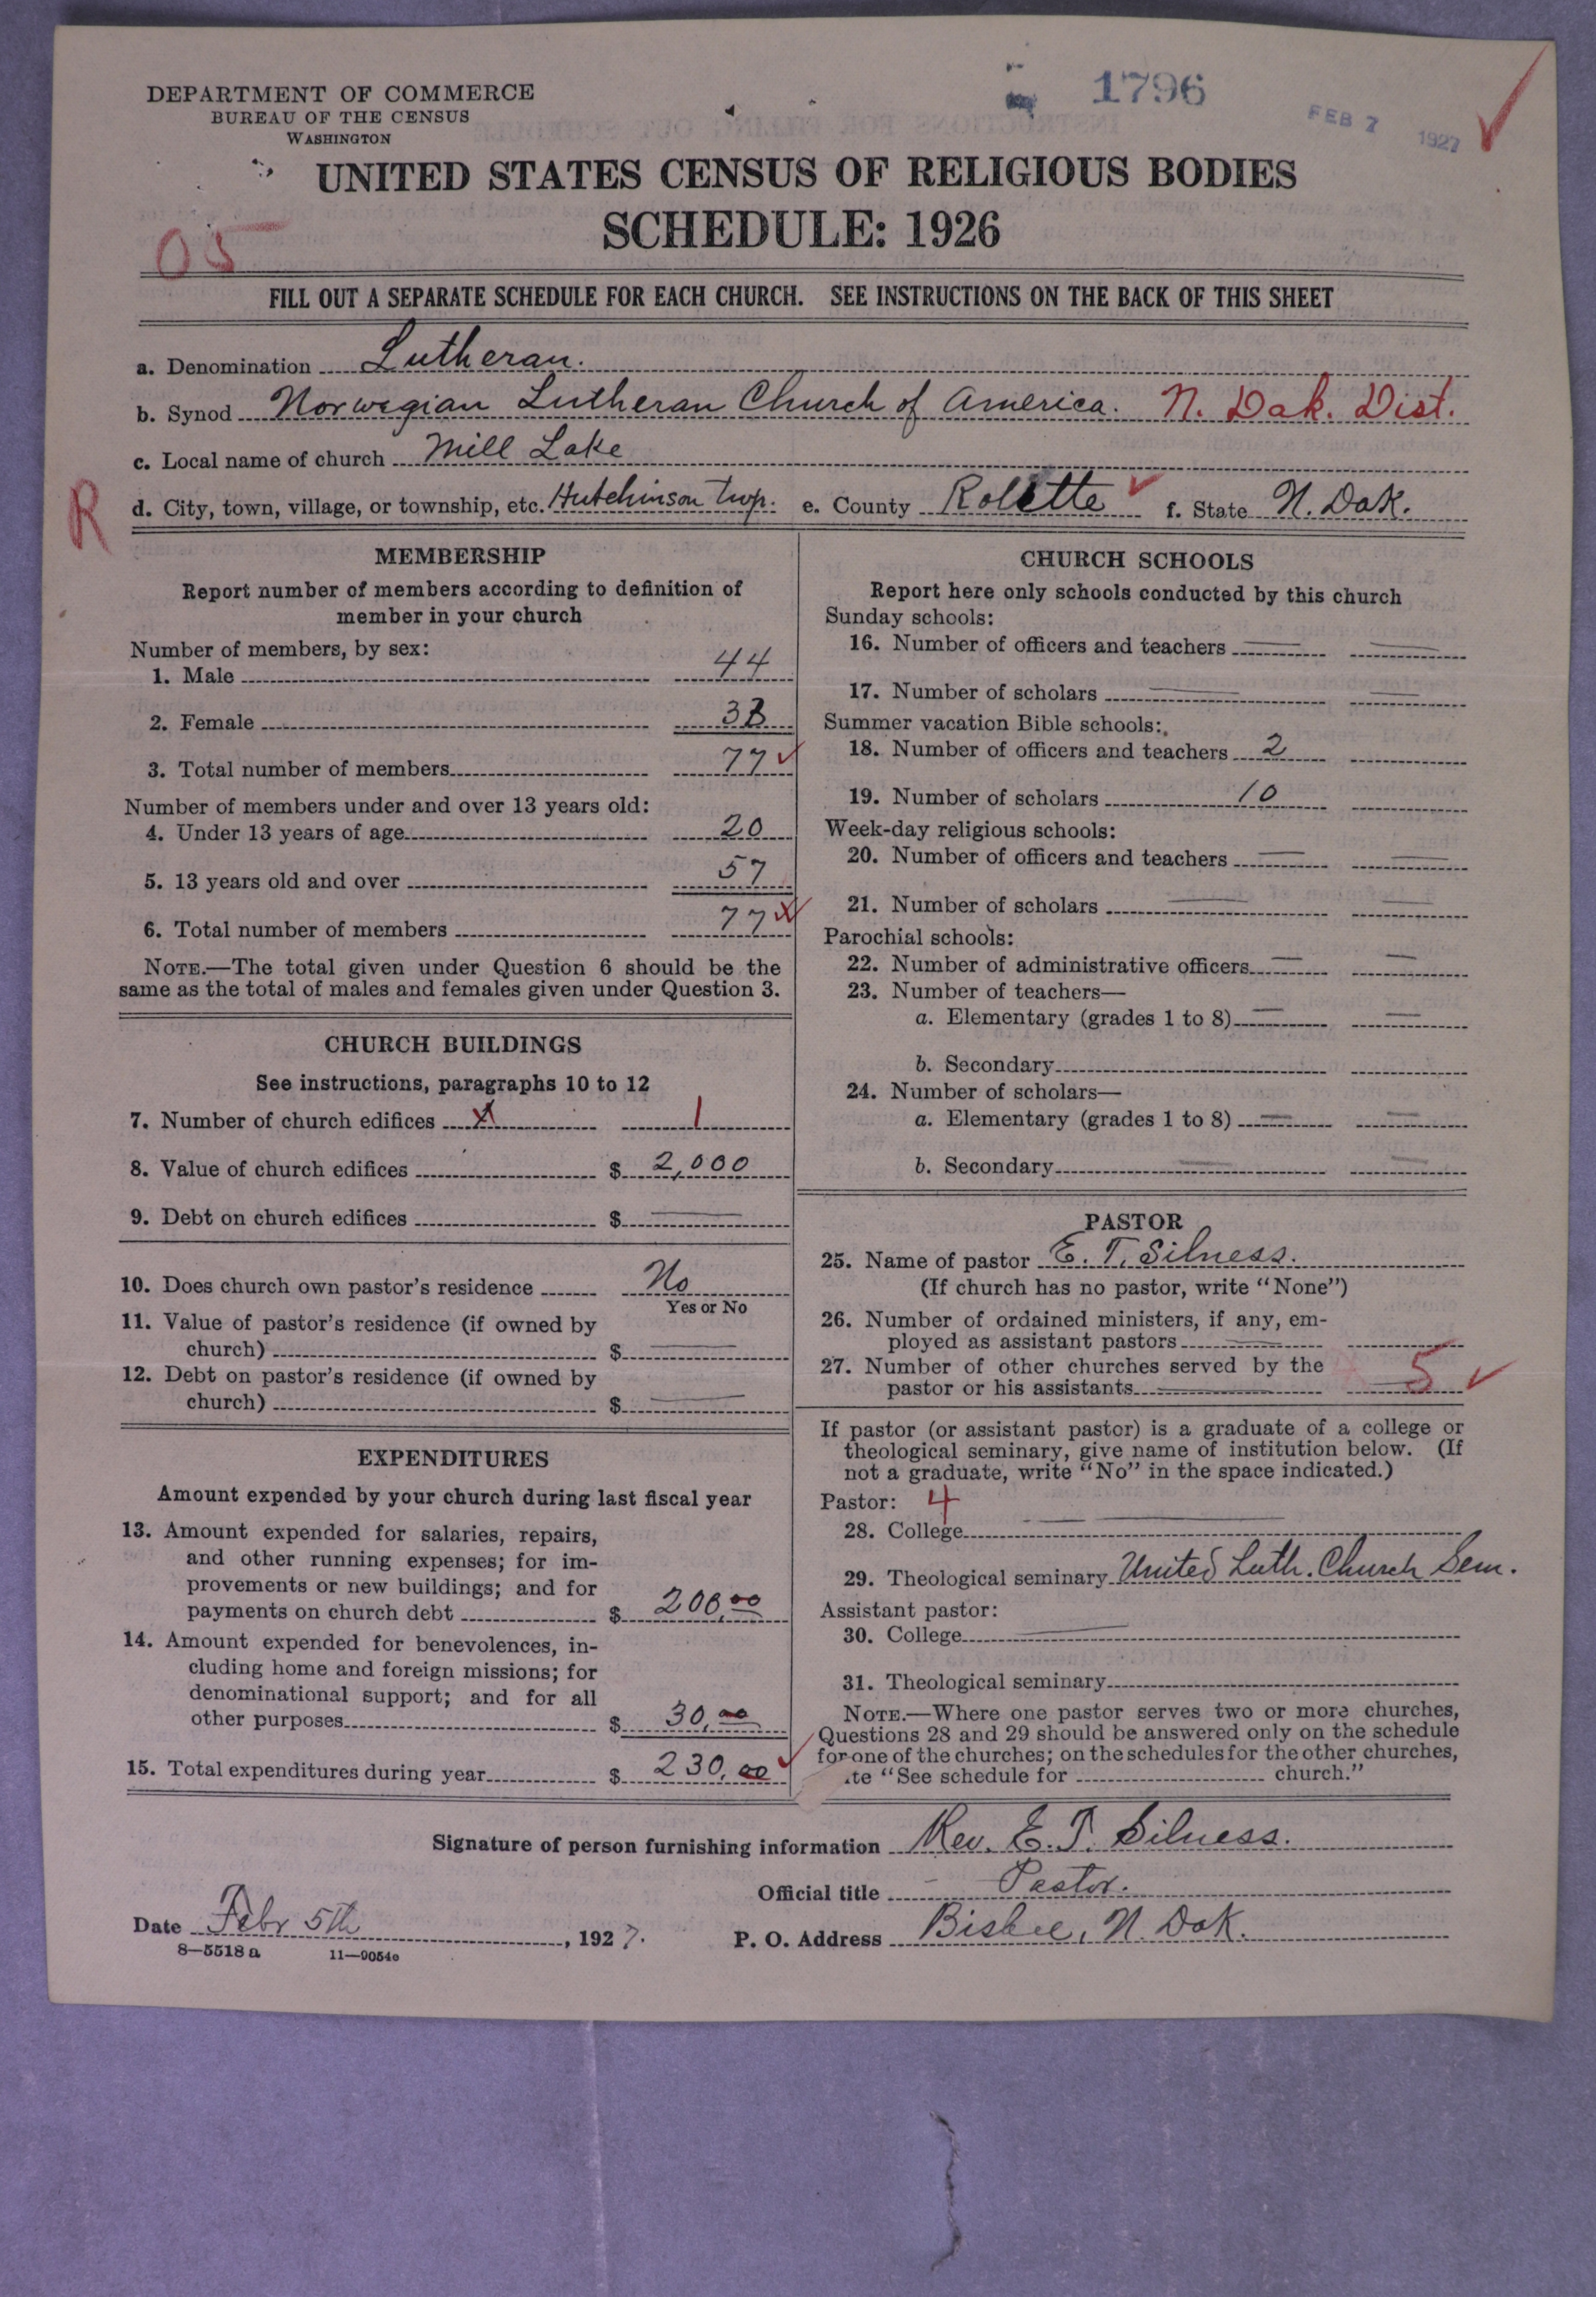 DEPARTMENT OF COMMERCE
BUREAU OF THE CENSUS
WASHINGTON
1796
FEB 7 1927
UNITED STATES CENSUS OF RELIGIOUS BODIES
SCHEDULE: 1926
05
FILL OUT A SEPARATE SCHEDULE FOR EACH CHURCH. SEE INSTRUCTIONS ON THE BACK OF THIS SHEET
a. Denomination Lutheran.
b. Synod Norwegian Lutheran Church of America. N. Dak. Dist.
c. Local name of church Mill Lake
R
d. City, town, village, or township, etc. Hutchinson twp. e. County Rolette f. State N. Dak.
MEMBERSHIP
Report number of members according to definition of
member in your church
Number of members, by sex:
1. Male 44
2. Female 33
3. Total number of members 77
Number of members under and over 13 years old:
4. Under 13 years of age 20
5. 13 years old and over 57
6. Total number of members 77
NOTE.—The total given under Question 6 should be the
same as the total of males and females given under Question 3.
CHURCH BUILDINGS
See instructions, paragraphs 10 to 12
7. Number of church edifices 1
8. Value of church edifices $ 2,000
9. Debt on church edifices $
10. Does church own pastor's residence No
Yes or No
11. Value of pastor's residence (if owned by
church) $
12. Debt on pastor's residence (if owned by
church) $
EXPENDITURES
Amount expended by your church during last fiscal year
13. Amount expended for salaries, repairs,
and other running expenses; for im-
provements or new buildings; and for
payments on church debt $ 200.00
14. Amount expended for benevolences, in-
cluding home and foreign missions; for
denominational support; and for all
other purposes $ 30.00
15. Total expenditures during year $ 230.00
CHURCH SCHOOLS
Report here only schools conducted by this church
Sunday schools:
16. Number of officers and teachers
17. Number of scholars
Summer vacation Bible schools:
18. Number of officers and teachers 2
19. Number of scholars 10
Week-day religious schools:
20. Number of officers and teachers
21. Number of scholars
Parochial schools:
22. Number of administrative officers
23. Number of teachers—
a. Elementary (grades 1 to 8)
b. Secondary
24. Number of scholars—
a. Elementary (grades 1 to 8)
b. Secondary
PASTOR
25. Name of pastor E. T. Silness.
(If church has no pastor, write "None")
26. Number of ordained ministers, if any, em-
ployed as assistant pastors
27. Number of other churches served by the
pastor or his assistants 5
If pastor (or assistant pastor) is a graduate of a college or
theological seminary, give name of institution below. (If
not a graduate, write "No" in the space indicated.)
Pastor: 4
28. College
29. Theological seminary United Luth. Church Sem.
Assistant pastor:
30. College
31. Theological seminary
NOTE.—Where one pastor serves two or more churches,
Questions 28 and 29 should be answered only on the schedule
for one of the churches; on the schedules for the other churches,
te "See schedule for church."
Signature of person furnishing information Rev. E. T. Silness.
Official title Pastor.
Date Febr 5th, 1927.
P. O. Address Bisbee, N. Dak.
8—5518 a 11—9054e